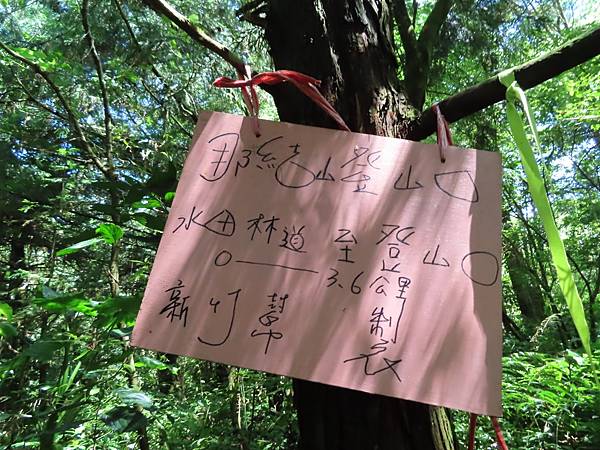 那結山登山口
水田林道至登山口
0—3.6公里
新竹幫製